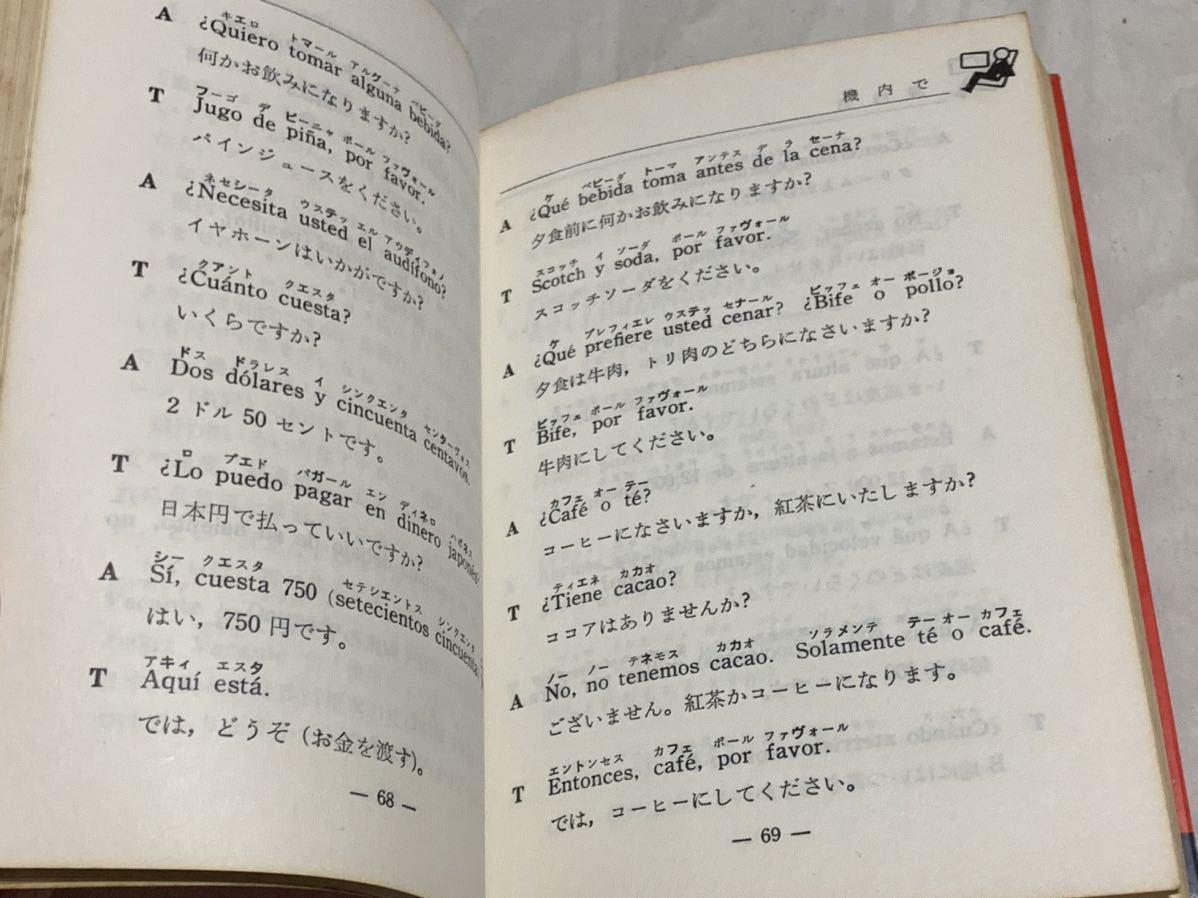 キエロ トマール アルグーナ ベビーダ
A ¿Quiero tomar alguna bebida?
何かお飲みになりますか?
フーゴ デ ピーニャ ポール ファヴォール
T Jugo de piña, por favor.
パインジュースをください。
ネセシータ ウステッ エル アウディフォノ
A ¿Necesita usted el audífono?
イヤホーンはいかがですか?
クアント クエスタ
T ¿Cuánto cuesta?
いくらですか?
ドス ドラレス イ シンクエンタ センターヴォス
A Dos dólares y cincuenta centavos.
2 ドル 50 セントです。
ロ プエド パガール エン ディネロ ハポネス
T ¿Lo puedo pagar en dinero japonés?
日本円で払っていいですか?
シー クエスタ セテシエントス シンクエンタ
A Sí, cuesta 750 (setecientos cincuenta
はい, 750 円です。
アキィ エスタ
T Aquí está.
では, どうぞ (お金を渡す)。
— 68 —
機内で
ケ ベビーダ トーマ アンテス デ ラ セーナ
A ¿Qué bebida toma antes de la cena?
夕食前に何かお飲みになりますか?
スコッチ イ ソーダ ポール ファヴォール
T Scotch y soda, por favor.
スコッチソーダをください。
ケ プレフィエレ ウステッ セナール ビッフェ オー ポージョ
A ¿Qué prefiere usted cenar? ¿Bife o pollo?
夕食は牛肉, トリ肉のどちらになさいますか?
ビッフェ ポール ファヴォール
T Bife, por favor.
牛肉にしてください。
カフェ オー テー
A ¿Café o té?
コーヒーになさいますか, 紅茶にいたしますか?
ティエネ カカオ
T ¿Tiene cacao?
ココアはありませんか?
ノー ノー テネモス カカオ ソラメンテ テー オー カフェ
A No, no tenemos cacao. Solamente té o café.
ございません。紅茶かコーヒーになります。
エントンセス カフェ ポール ファヴォール
T Entonces, café, por favor.
では, コーヒーにしてください。
— 69 —